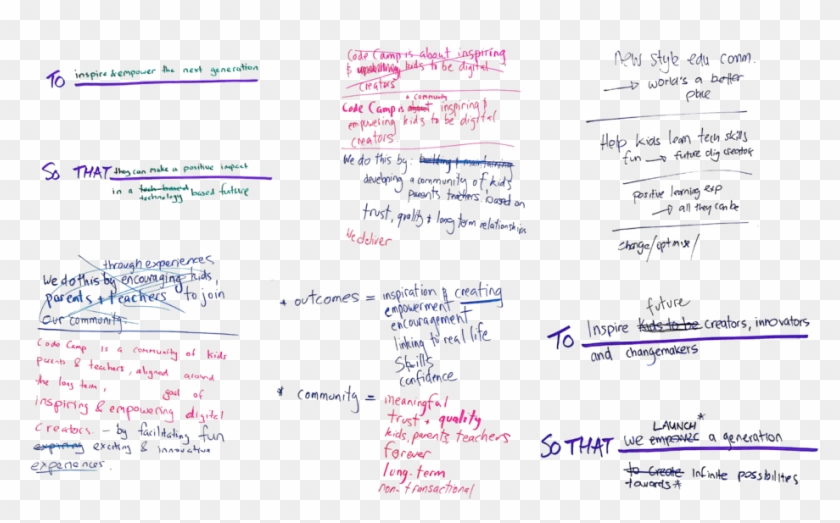 TO inspire & empower the next generation
SO THAT they can make a positive impact
in a tech-based based future
technology
Code Camp is about inspiring
& kids to be digital
creators
+ community
Code Camp is about inspiring &
empowering kids to be digital
creators
We do this by: building & maintaining
developing a community of kids
parents teachers based on
trust, quality & long term relationships
We deliver
New style edu comm.
→ world's a better
place
Help kids learn tech skills
fun → future dig creator
positive learning exp
→ all they can be
change/optmise/
through experiences
We do this by encouraging kids,
parents + teachers to join
our community.
Code Camp is a community of kids
parents & teachers, aligned around
the long term, goal of
inspiring & empowering digital
creators. - by facilitating fun
expiring exciting & innovative
experiences.
* outcomes = inspiration & creating
empowerment
encouragement
linking to real life
skills
confidence
* community = meaningful
trust + quality
kids, parents teachers
forever
long-term
non-transactional
future
TO Inspire kids to be creators, innovators
and changemakers
LAUNCH*
SO THAT we empower a generation
to create infinite possibilities
towards*